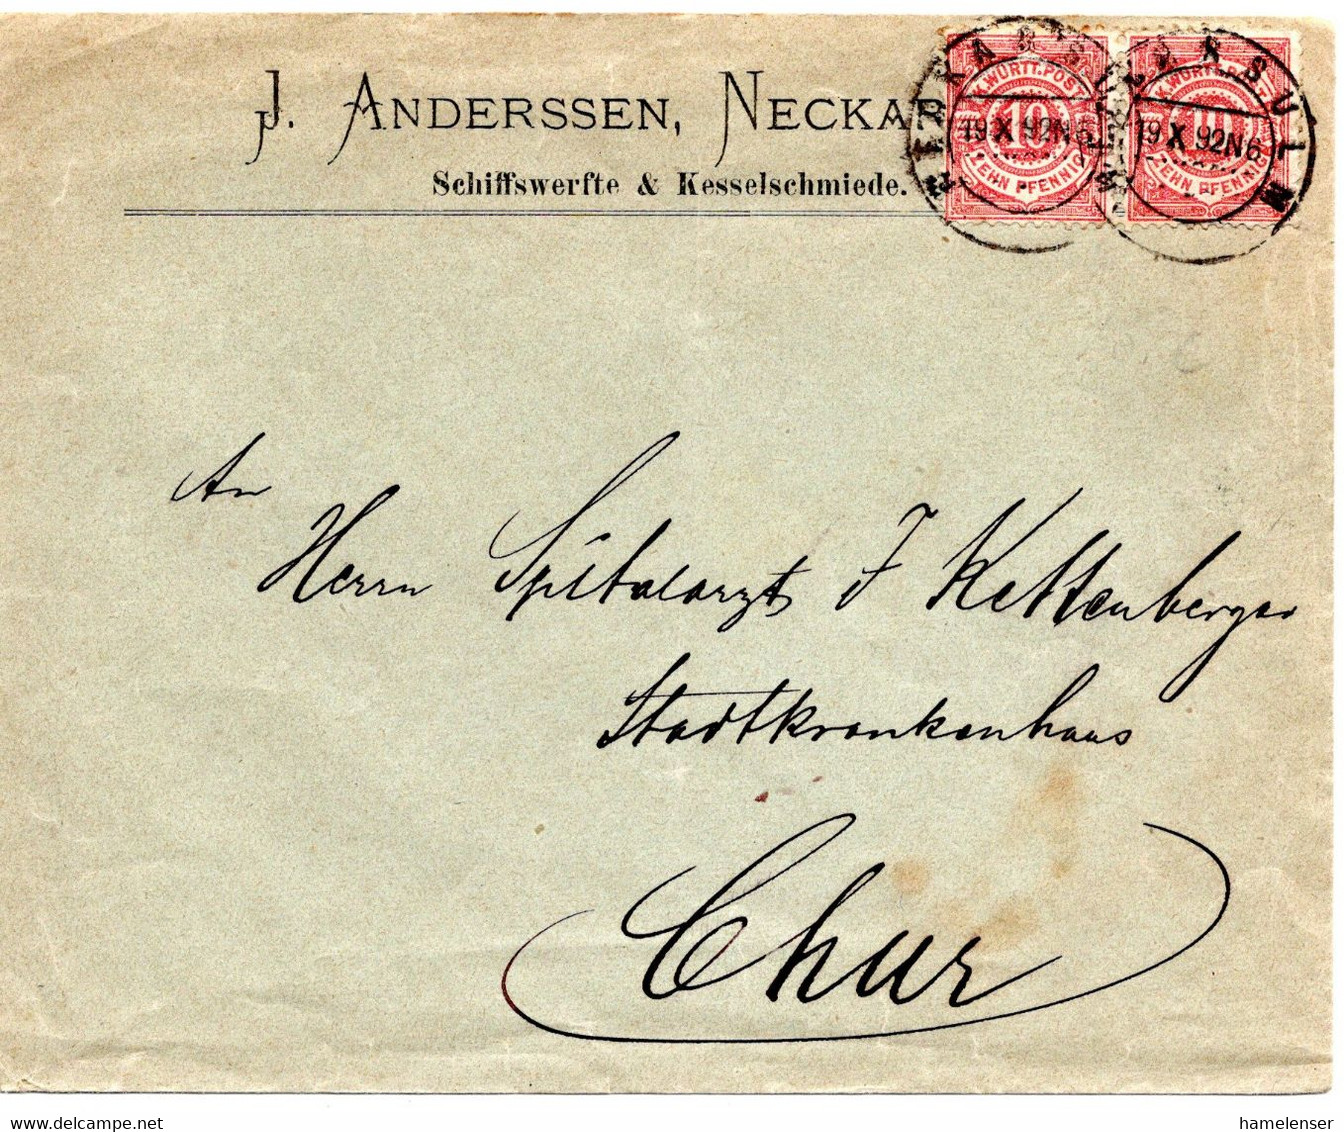 J. ANDERSSEN, NECKAR
Schiffswerfte & Kesselschmiede.
K. WÜRTT. POST
10
ZEHN PFENNIG
NECKARSULM
19 X 92 N6
K. WÜRTT. POST
10
ZEHN PFENNIG
NECKARSULM
19 X 92 N6
An
Herrn Spitalarzt J Kettenberger
Stadtkrankenhaus
Chur
www.delcampe.net
hamelenser